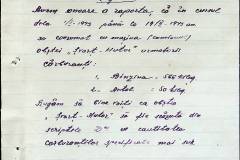 Avem onoare a raporta, că în cursul
dela 1/I-1943 până la 19/II-1943 am
s'a consumat cu mașina (camionul)
obștei „Frart-Motor" următorii
carburanți:
1. Benzina = 566 kg.
2. Motol = 50 kg.
Rugăm să bine voiți ca obștia
să fie scăzută din
scriptele cu cantitatea
carburanților specificați mai sus